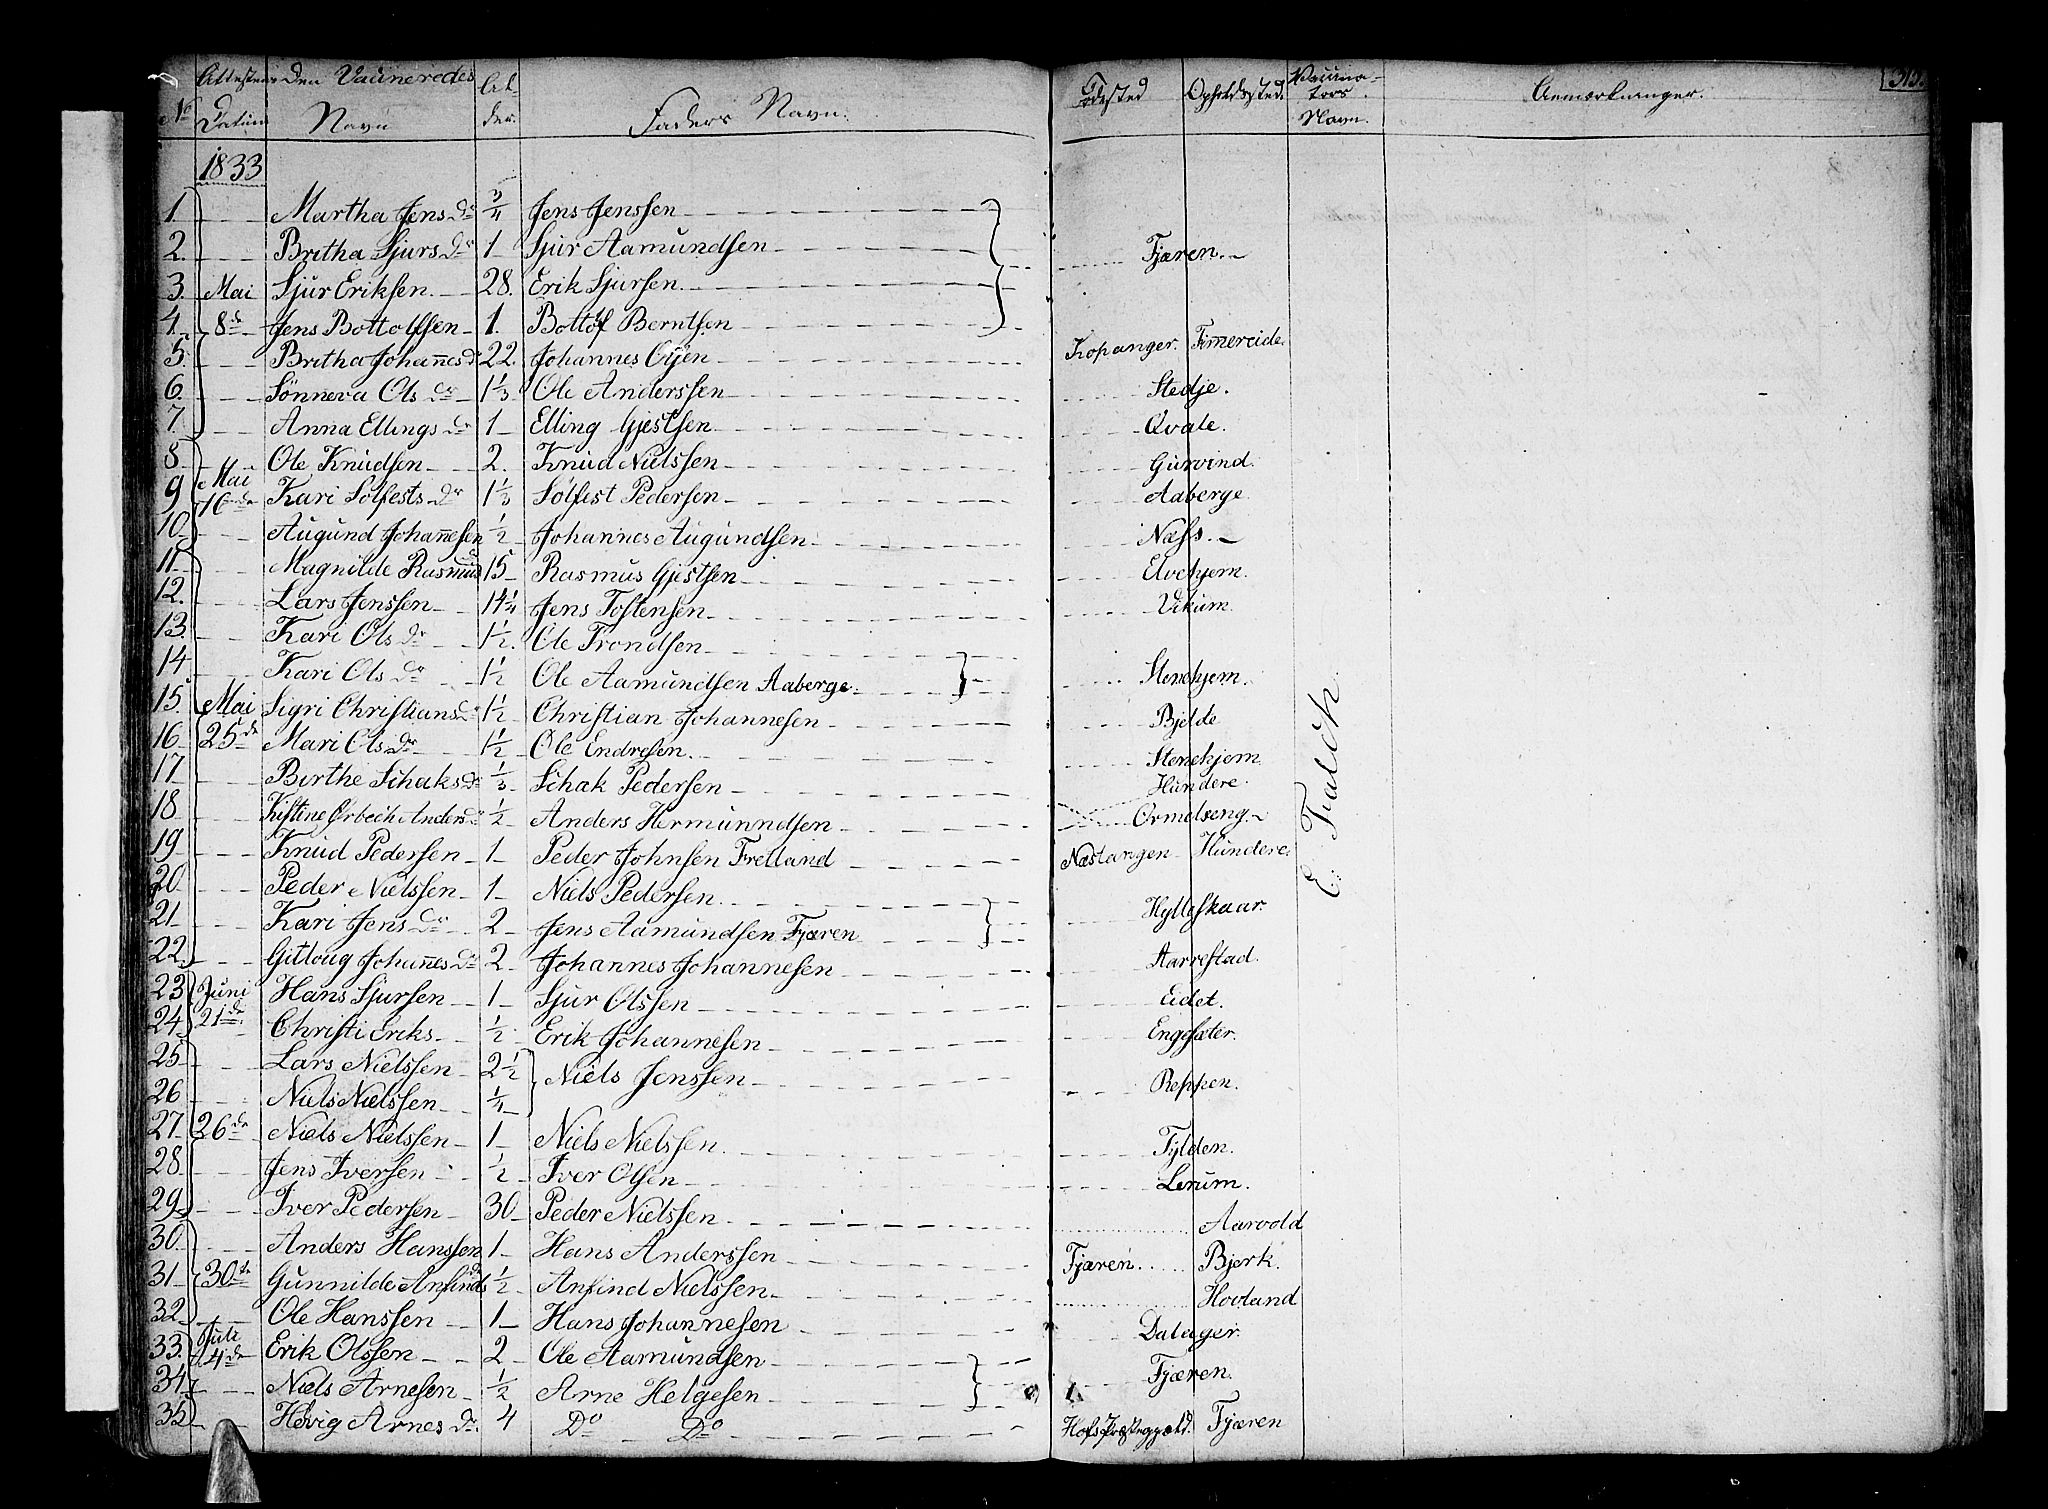 Attestens Datum | Den Vaccineredes Navn | Alder. | Faders Navn. | Fødested | Opholdssted. | Vaccinators Navn. | Anmærkninger. | 313.
1833
1. Martha Jens Dr 3/4 Jens Jenssen
2. Britha Sjurs Dr 1 Sjur Aamundsen Fjæren.
3. Mai Sjur Eriksen. 28. Erik Sjursen
4. 8de Jens Bottolfsen 1. Bottolf Berntsen
5. Britha Johannes Dr 22. Johannes Oÿen Kopanger. Timmereide.
6. Sönneva Ols Dr 1 1/3 Ole Anderssen Stedje.
7. Anna Ellings Dr 1 Elling Gjestsen Qvale.
8. Ole Knudsen 2. Knud Nielssen Gurvind.
9. Mai 16de Kari Solfests Dr 1 1/3 Solfest Pedersen Aaberge
10. Augund Johannesen 1/2 Johannes Augundsen Næss.
11. Magnilde Rasmus Dr 15 Rasmus Gjestsen Elvehjem.
12. Lars Jenssen 14 1/4 Jens Tostensen Vikum.
13. Kari Ols Dr 1 1/2. Ole Trondsen
14 Kari Ols Dr 1 1/2 Ole Aamundsen Aaberge. Stenehjem.
15. Mai Sigri Christians Dr 1 1/2 Christian Johannesen Bjelde
16 25de Mari Ols Dr 1 1/2 Ole Endresen Stenehjem
17 Birthe Schaks Dr 1/3 Schak Pedersen Hundere.
18 Kistine Ørbech Anders Dr 1/2 Anders Hermunndsen Ormelseng.
19 Knud Pedersen 1 Peder Johnsen Fretland Næstangen Hundere.
20. Peder Nielssen 1 Niels Pedersen
21 Kari Jens Dr 2 Jens Aamundsen Fjæren Hylleskaar.
22. Gitloug Johannes Dr 2 Johannes Johannesen Aarrestad.
23 Juni Hans Sjursen 1 Sjur Olssen Eidet.
24 21de Christi Eriks. 1/2 Erik Johannesen Engesæter.
25 Lars Nielssen 2 1/2 Niels Jenssen Reppen.
26 Niels Nielssen 1/4
27 26de Niels Nielssen 1 Niels Nielssen Fylden.
28 Jens Iversen 1/2 Iver Olsen Lerum.
29 Iver Pedersen 30 Peder Nielssen Aarvold
30. Anders Hanssen 1 Hans Anderssen Fjæren Bjerk.
31 30te Gunnilde Anfinds Dr 1/2 Anfind Nielssen Hovland
32 Ole Hanssen 1 Hans Johannesen Dalager.
33. Juli 4de Erik Olssen 2 Ole Aamundsen
34. Niels Arnesen 1/2 Arne Helgesen Fjæren.
35 Helvig Arnes Dr 4 Do Do Hofs Præstegjæld. Fjæren
E: Falch